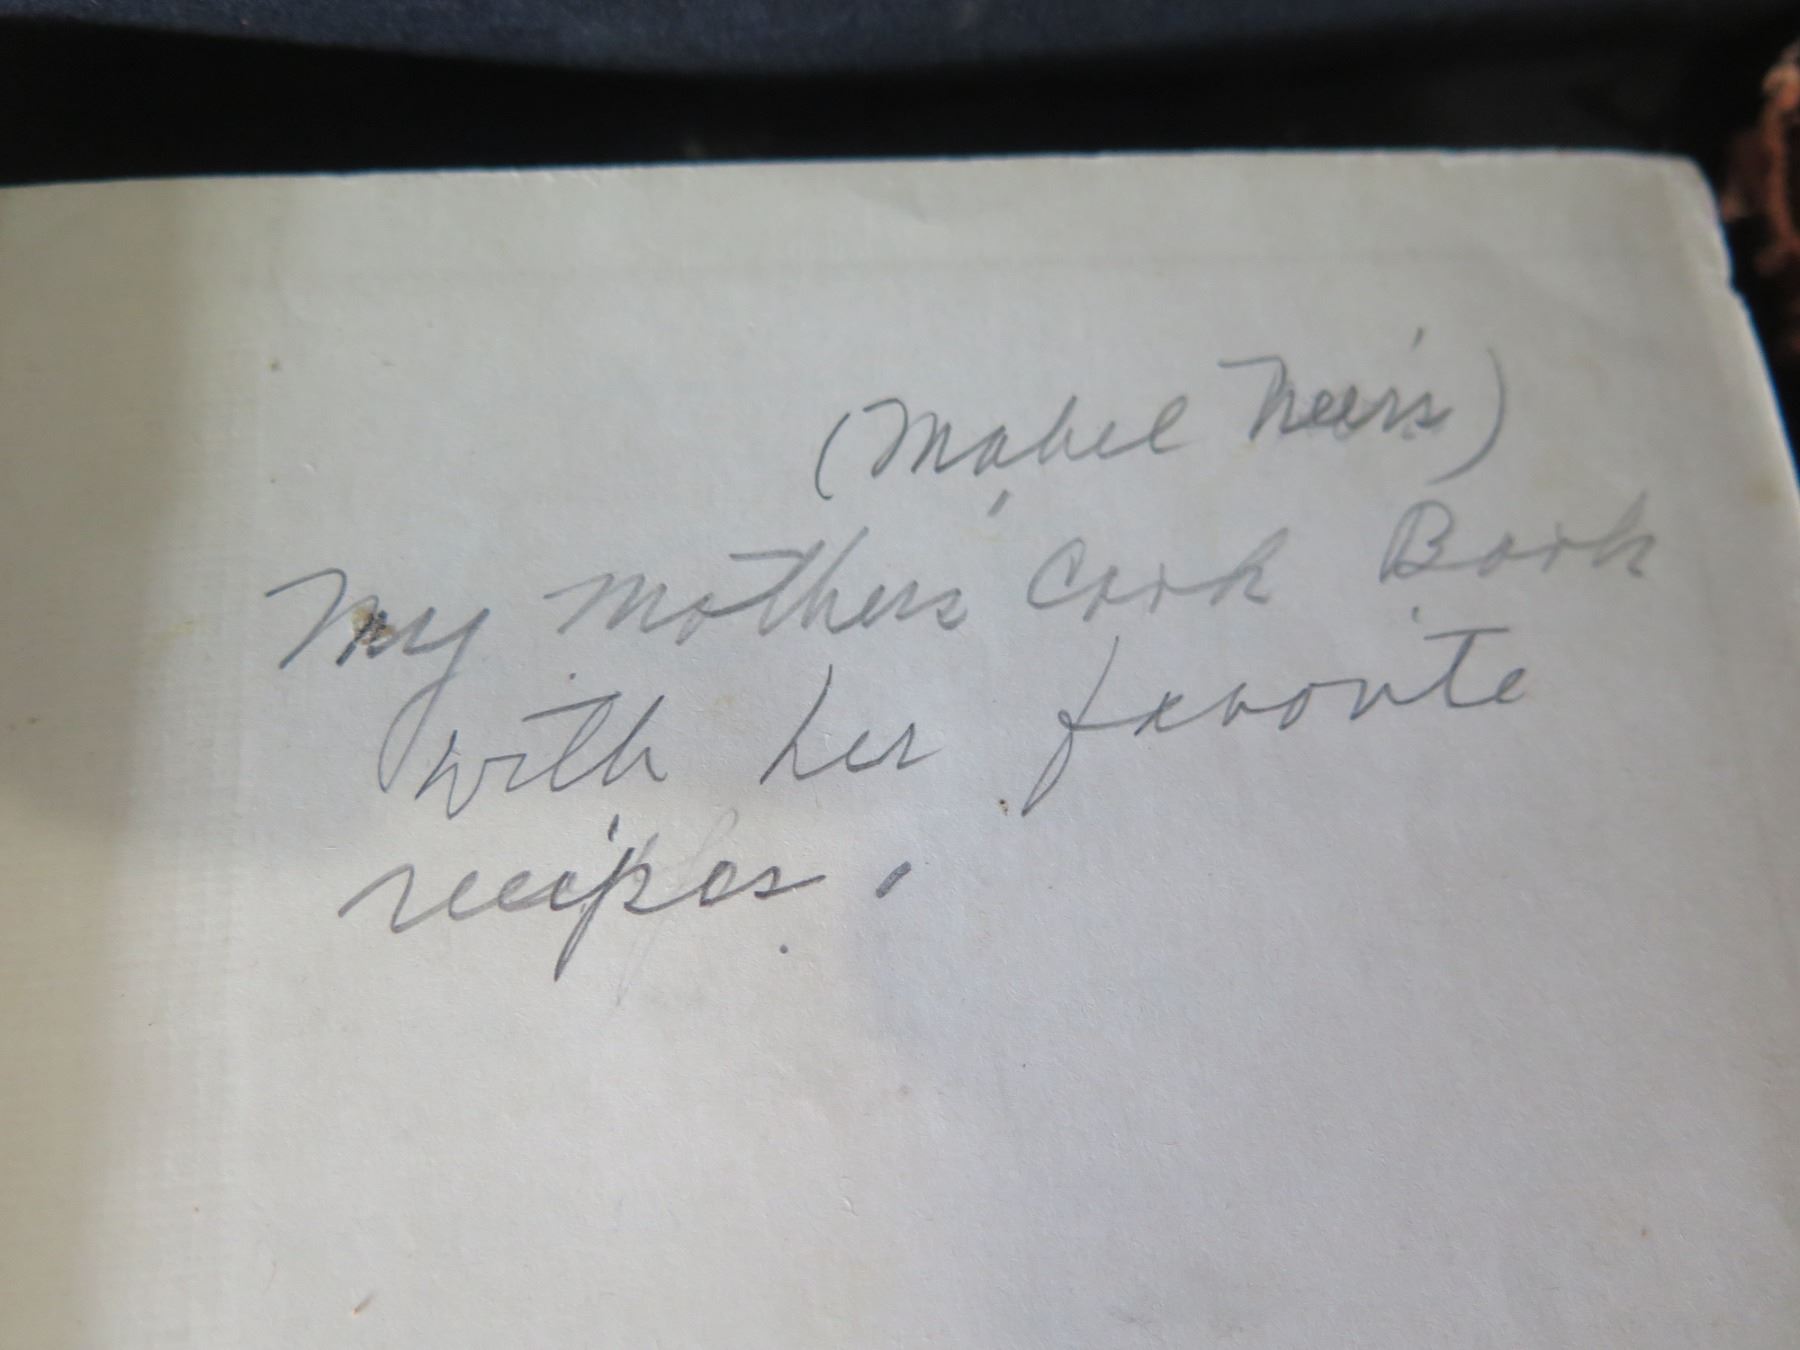 (Mabel Neer's)
My Mother's Cook Book
with her favorite
recipes.